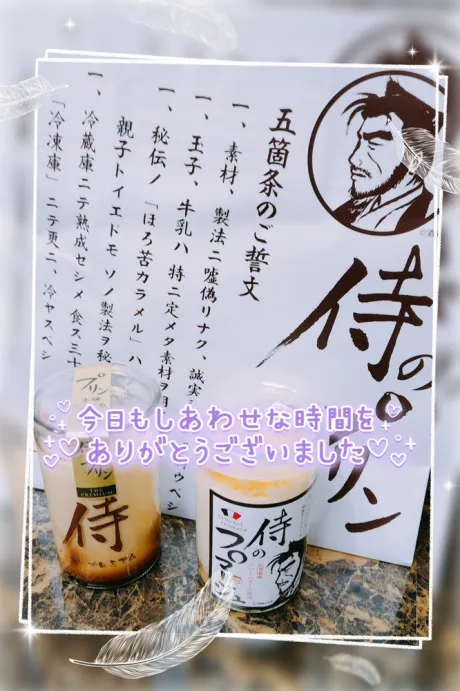 侍のプリン
五箇条のご誓文
一、素材、製法ニ嘘偽リナク、誠実
一、玉子、牛乳ハ 特ニ定メタ素材ヲ用
一、秘伝ノ「ほろ苦カラメル」ハ
親子トイエドモ ソノ製法ヲ秘
一、冷蔵庫ニテ熟成セシメ 食ス三十
「冷凍庫」ニテ更ニ、冷ヤスベシ
今日もしあわせな時間を
ありがとうございました
プリン
THE PREMIUM
侍
プレミアム
侍の